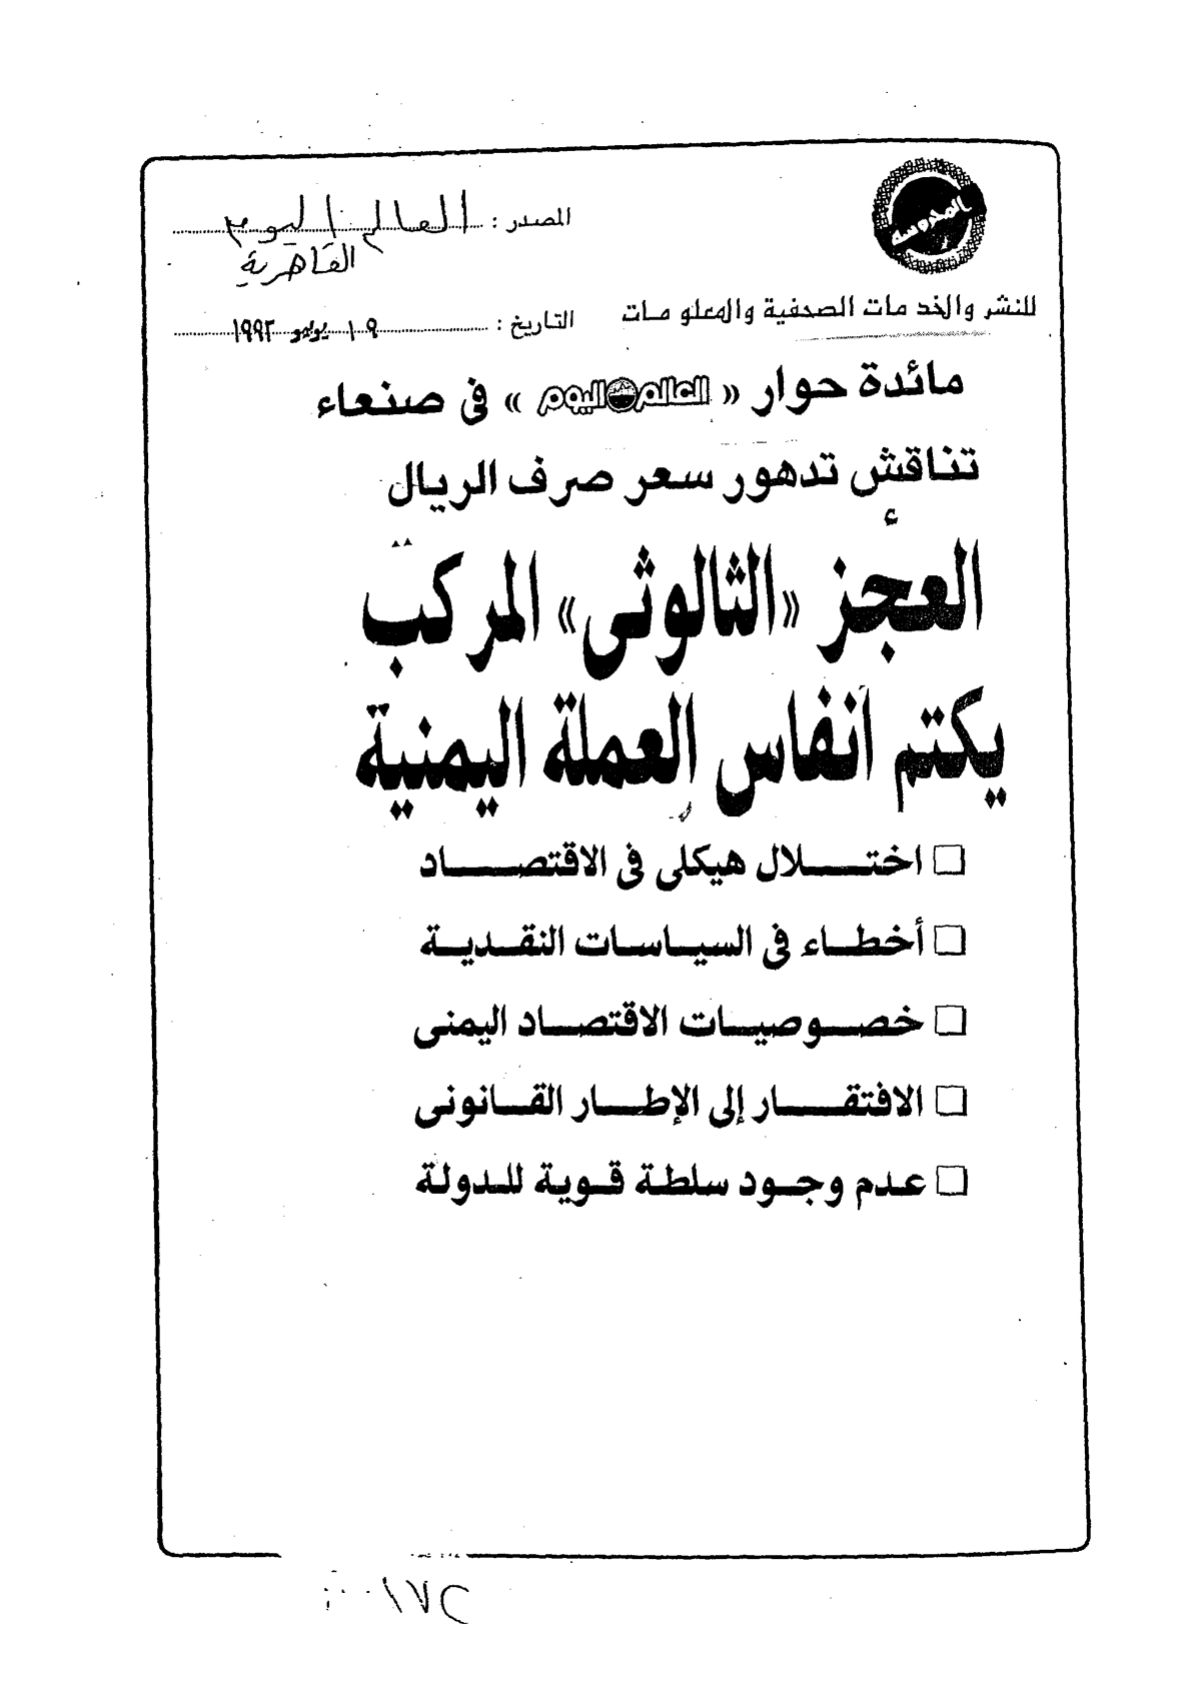 المحروسة
المصدر : العالم اليوم
القاهرية
للنشر والخدمات الصحفية والمعلومات
التاريخ : ١٩ يونيو ١٩٩٣
مائدة حوار « العالم اليوم » فى صنعاء
تناقش تدهور سعر صرف الريال
العجز «الثالوثى» المركب
يكتم أنفاس العملة اليمنية
□ اختلال هيكلى فى الاقتصاد
□ أخطاء فى السياسات النقدية
□ خصوصيات الاقتصاد اليمنى
□ الافتقار إلى الإطار القانونى
□ عدم وجود سلطة قوية للدولة